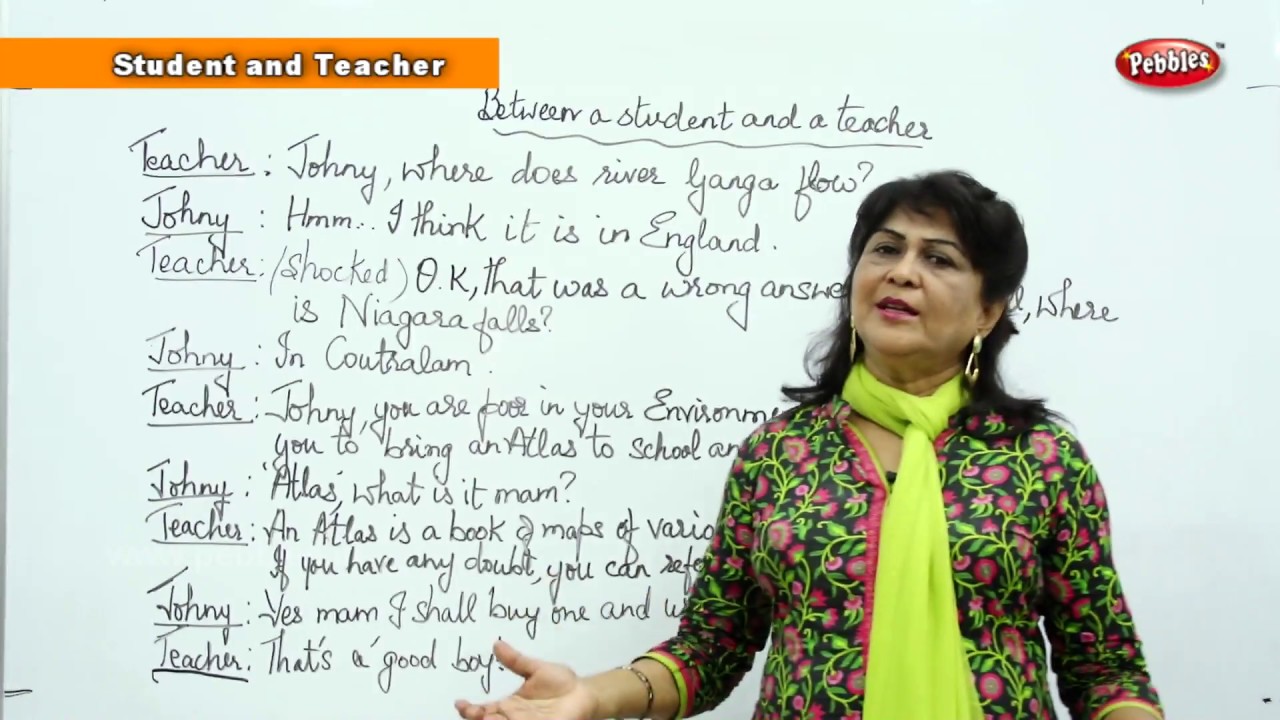 Student and Teacher
Pebbles
Between a student and a teacher
Teacher: Johny, where does river Ganga flow?
Johny : Hmm... I think it is in England.
Teacher: (Shocked) O.K, that was a wrong , where
is Niagara falls?
Johny : In Coutralam.
Teacher: Johny, you are poor in your
you to bring an Atlas to school
Johny : 'Atlas', what is it mam?
Teacher: An Atlas is a book of maps of
If you have any doubt, you can
Johny : Yes mam I shall buy one and
Teacher: That's a good boy!